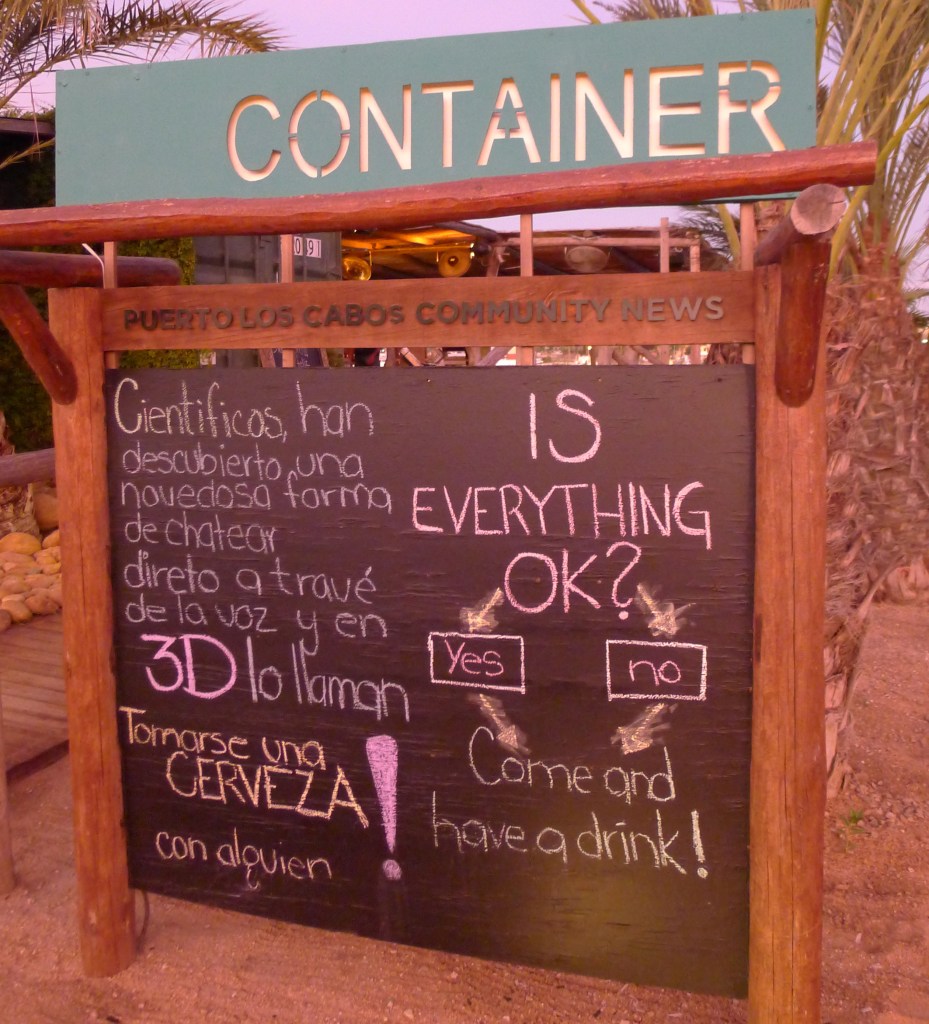 CONTAINER
091
PUERTO LOS CABOS COMMUNITY NEWS
Científicos, han
descubierto una
novedosa forma
de chatear
direto a travé
de la voz y en
3D lo llaman
Tomarse una
CERVEZA
con alguien
!
IS
EVERYTHING
OK?
Yes no
Come and
have a drink!